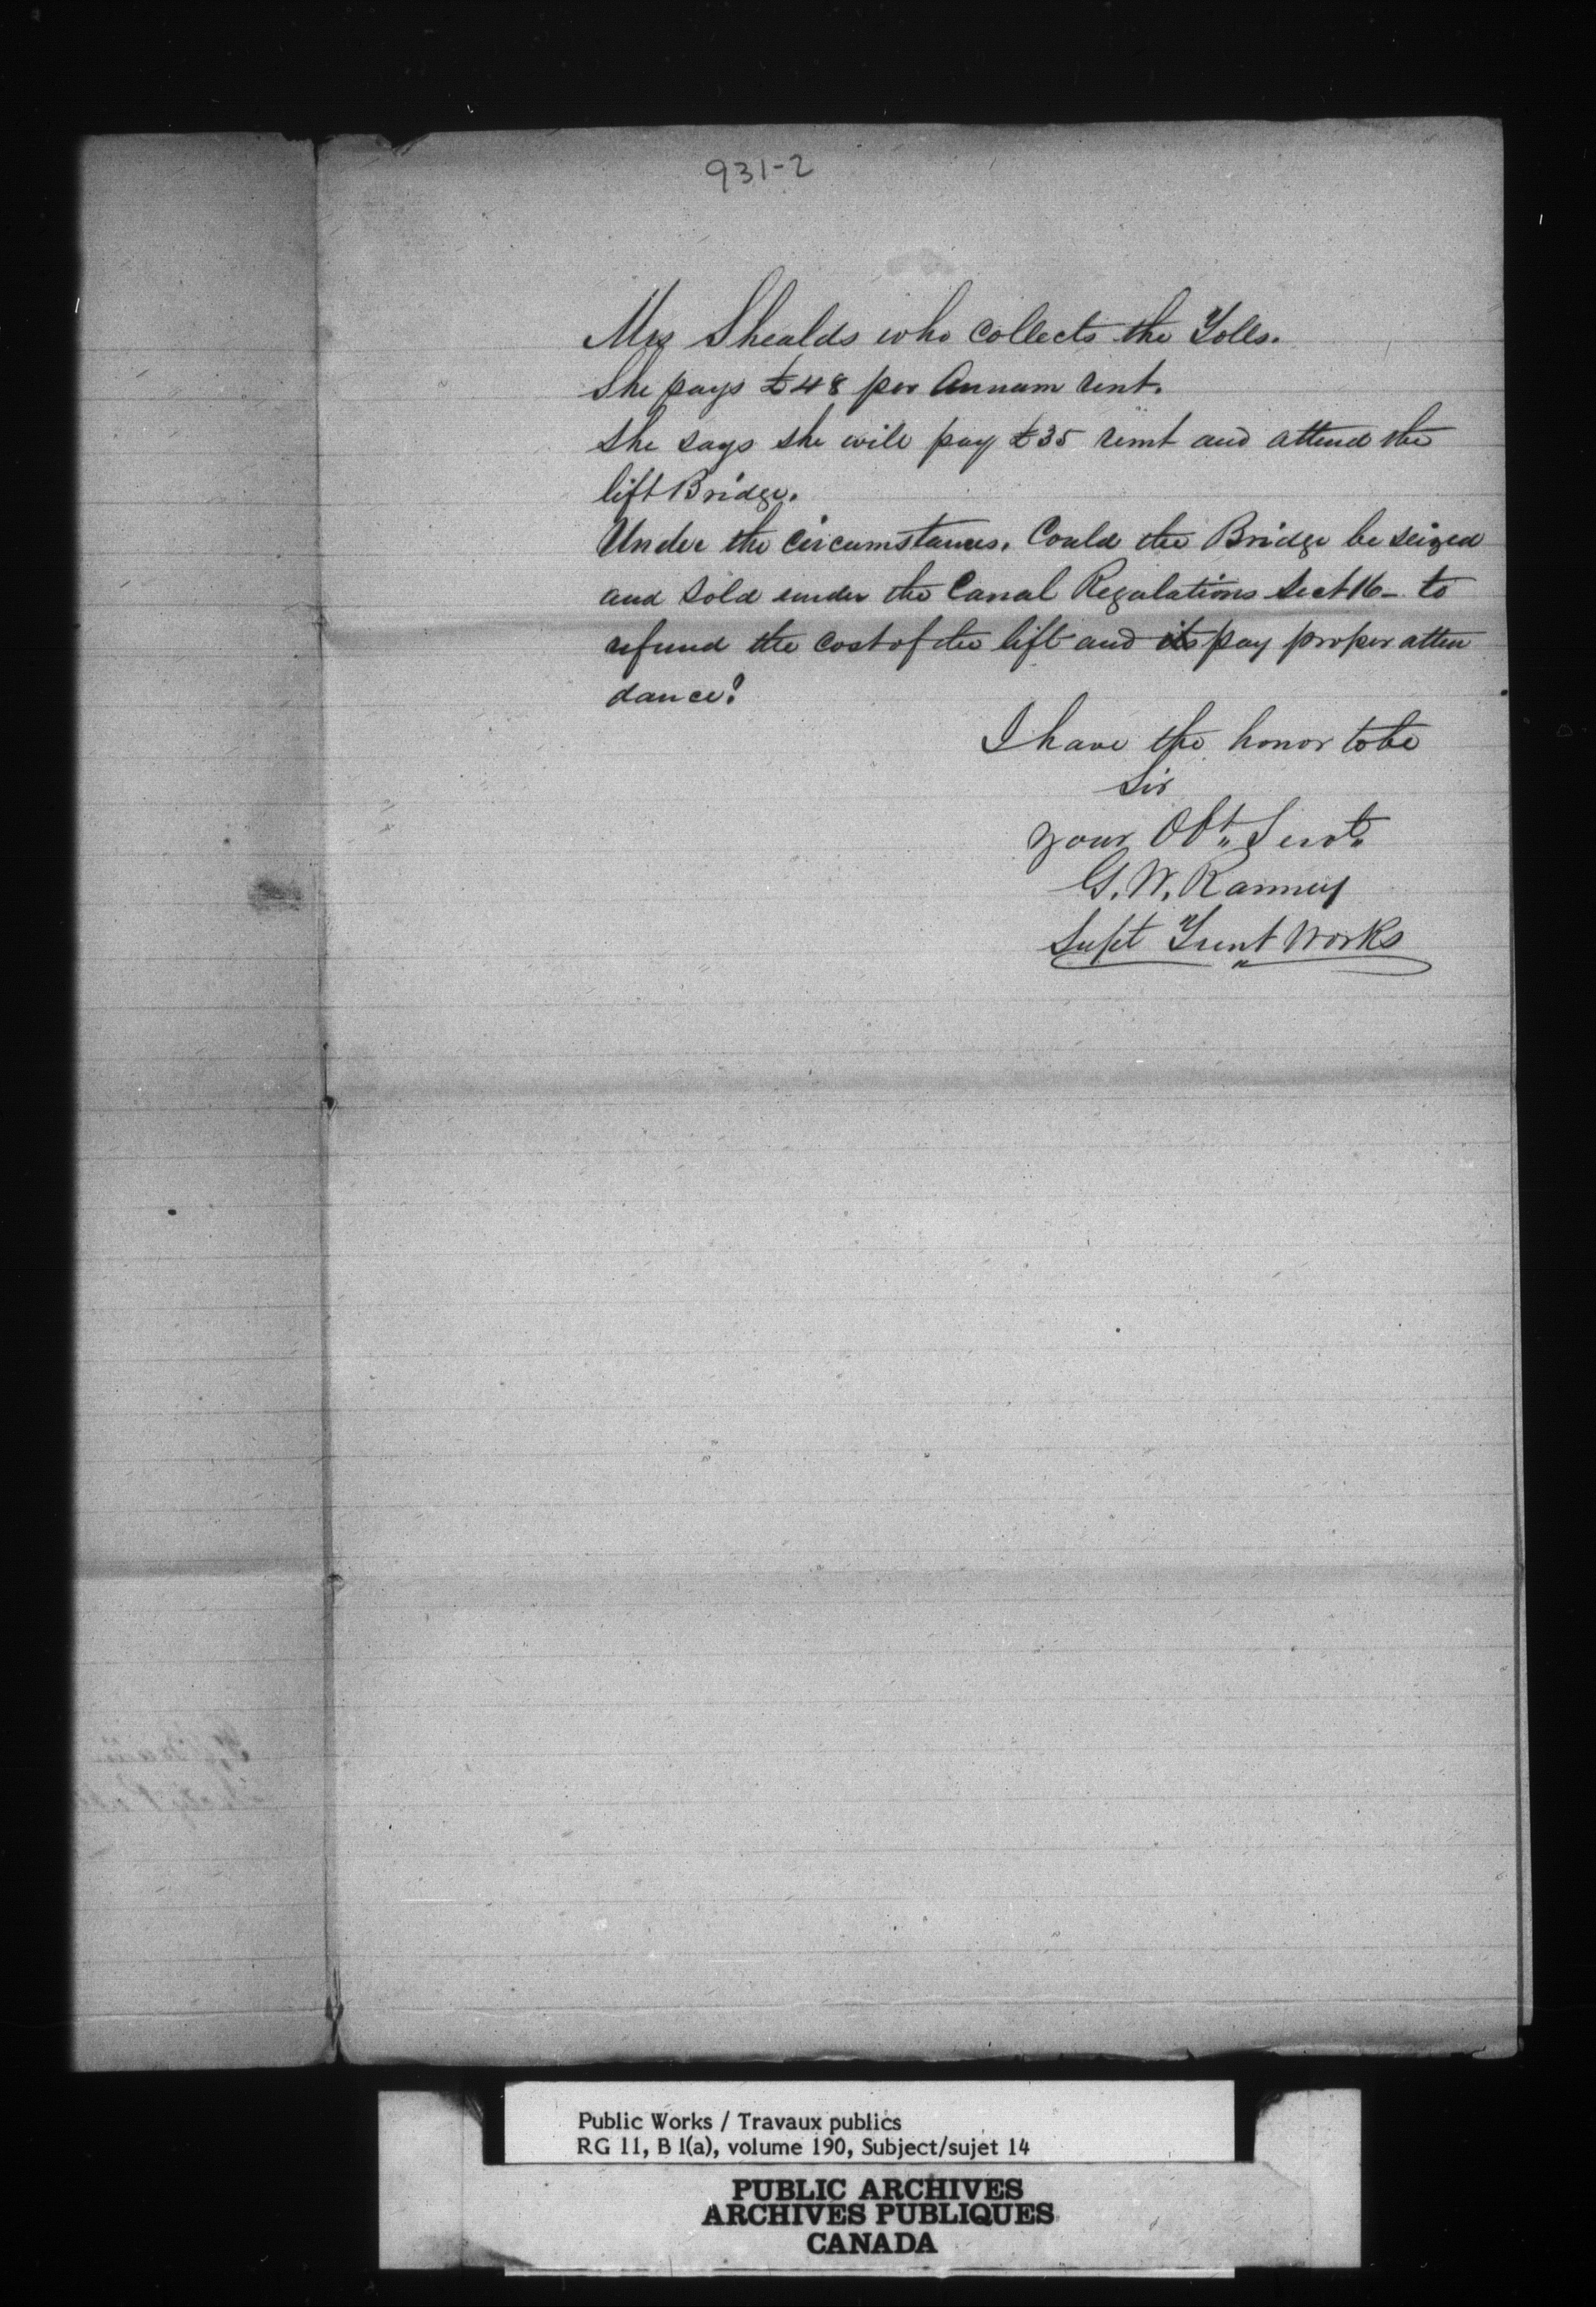 931-2
Mrs Shealds who collects the Tolls.
She pays £48 per Annum rent.
she says she will pay £35 rent and attend the
lift Bridge.
Under the circumstances. Could the Bridge be seized
and sold under the Canal Regulations Sect 16 - to
refund the cost of the lift and its pay proper atten
dance?
I have the honor to be
Sir
your Obt" Servt"
G. W. Ranney
Supt Trent Works
Public Works / Travaux publics
RG 11, B 1(a), volume 190, Subject/sujet 14
PUBLIC ARCHIVES
ARCHIVES PUBLIQUES
CANADA